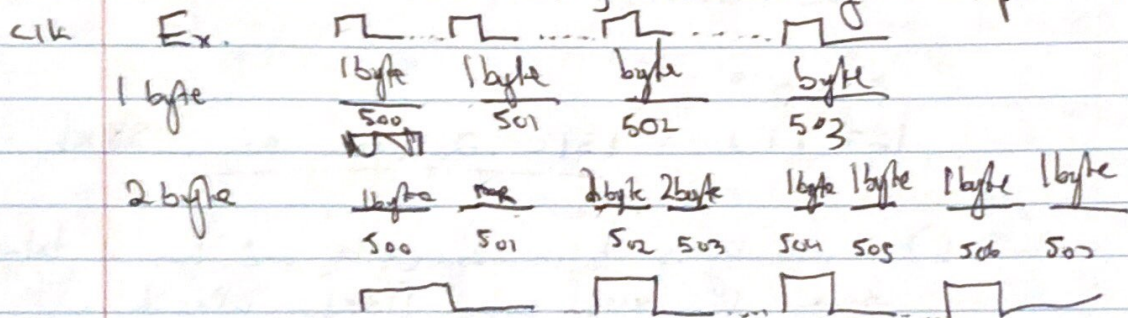 clk Ex.
1 byte 1 byte 1 byte byte byte
500 501 502 503
2 byte 1 byte 2 byte 2 byte 1 byte 1 byte 1 byte 1 byte
500 501 502 503 504 505 506 507